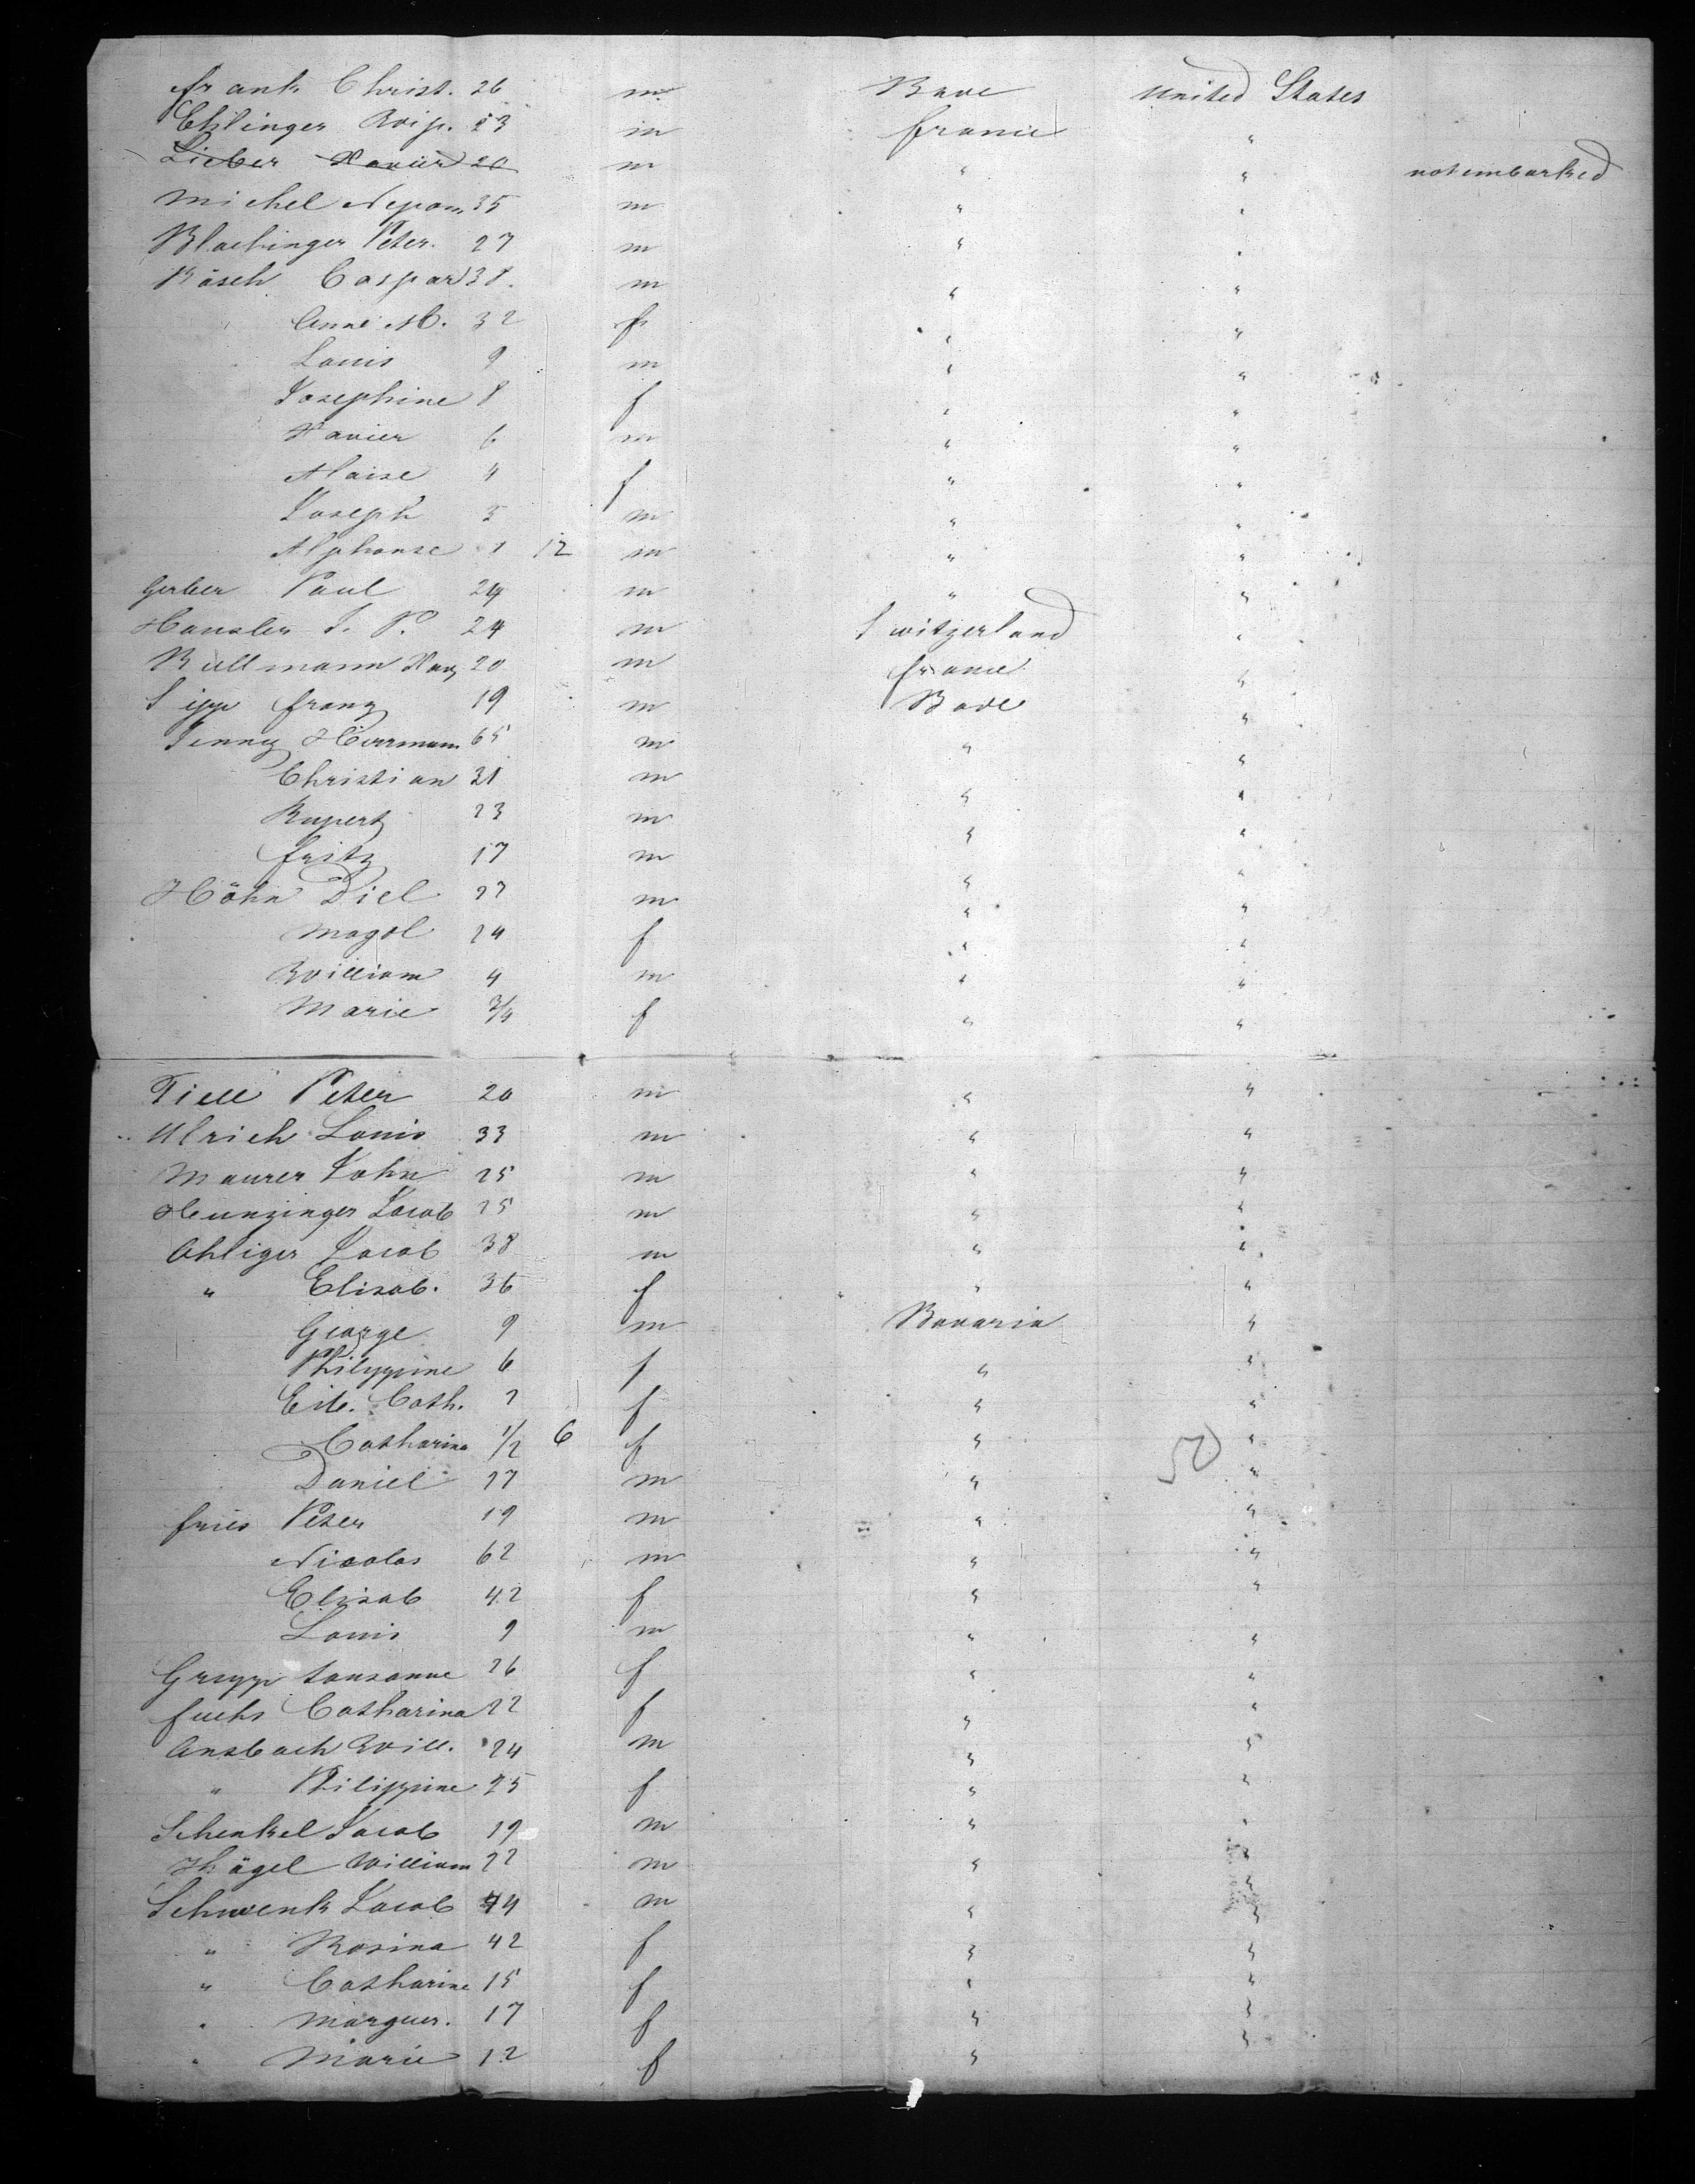 Frank Christ. 26 m Bade United States
Ehlinger 23 m France "
Lieber Xavier 20 m " " not embarked
Michel Nepom 35 m " "
Blachinger Peter. 27 m " "
Bäsch Caspar 38. m " "
Anne M. 32 f " "
Louis 9 m " "
Josephine 8 f " "
Xavier 6 m " "
Aloise 4 f " "
Joseph 3 m " "
Alphonse 1 12 m " "
Gerber Paul 24 m " "
Hausler J. P. 24 m Switzerland "
Bullmann Xav 20 m France "
Sipp Franz 19 m Bade "
Jenny Herrmann 65 m " "
Christian 31 m " "
Rupert 23 m " "
Fritz 17 m " "
Höhn Diel 27 m " "
Magd 24 f " "
William 4 m " "
Marie 3/4 f " "
Tiell Peter 20 m " "
Ulrich Louis 33 m " "
Maurer John 25 m " "
Heunzinger Jacob 25 m " "
Ahliger Jacob 38 m " "
" Elisab. 36 f " "
George 9 m Bavaria "
Philippine 6 f " "
Cath. 2 f " "
Catharina 1/2 6 f " "
Daniel 27 m " 50 "
Fries Peter 19 m " "
Nicolas 62 m " "
Elisab 42 f " "
Louis 9 m " "
Grupp Sousanne 26 f " "
Fuchs Catharina 22 f " "
Ansbach Will. 24 m " "
" Philippine 25 f " "
Schenkel Jacob 19 m " "
Hägel William 22 m " "
Schwenk Jacob 44 m " "
" Rosina 42 f " "
" Catharine 15 f " "
" Marguer. 17 f " "
" Marie 12 f " "